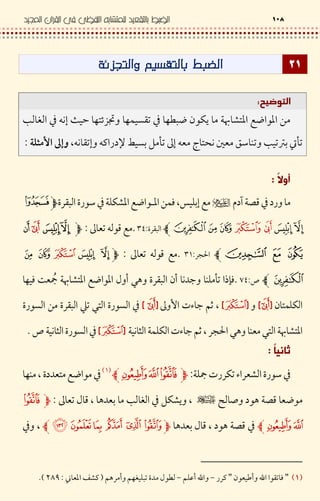 ١٠٨ الضبط بالتقعيد للمتشابه اللفظي في القرآن المجيد
٢١ الضبط بالتقسيم والتجزئة
التوضيح:
من المواضع المتشابهة ما يكون ضبطها في تقسيمها وتجزئتها حيث إنه في الغالب
تأتي بترتيب وتناسق معين نحتاج معه إلى تأمل بسيط لإدراكه وإتقانه، وإلى الأمثلة :
أولاً :
ما ورد في قصة آدم مع إبليس، فمن المواضع المشكلة في سورة البقرة ﴿ فَسَجَدُوٓا۟
إِلَّآ إِبْلِيسَ أَبَىٰ وَٱسْتَكْبَرَ وَكَانَ مِنَ ٱلْكَٰفِرِينَ ﴾ البقرة: ٣٤. مع قوله تعالى : ﴿ إِلَّآ إِبْلِيسَ أَبَىٰٓ أَن
يَكُونَ مَعَ ٱلسَّٰجِدِينَ ﴾ الحجر: ٣١. مع قوله تعالى : ﴿ إِلَّآ إِبْلِيسَ ٱسْتَكْبَرَ وَكَانَ مِنَ
ٱلْكَٰفِرِينَ ﴾ ص: ٧٤. فإذا تأملنا وجدنا أن البقرة وهي أول المواضع المتشابهة جُمعت فيها
الكلمتان [أَبَىٰ] و [وَٱسْتَكْبَرَ] ، ثم جاءت الأولى [أَبَىٰ] في السورة التي تلي البقرة من السورة
المتشابهة التي معنا وهي الحجر ، ثم جاءت الكلمة الثانية [ٱسْتَكْبَرَ] في السورة الثانية ص .
ثانياً :
في سورة الشعراء تكررت جملة: ﴿ فَٱتَّقُوا۟ ٱللَّهَ وَأَطِيعُونِ ﴾ (١) في مواضع متعددة ، منها
موضعا قصة هود وصالح ، ويشكل في الغالب ما بعدها ، قال تعالى : ﴿ فَٱتَّقُوا۟
ٱللَّهَ وَأَطِيعُونِ ﴾ في قصة هود ، قال بعدها ﴿ وَٱتَّقُوا۟ ٱلَّذِىٓ أَمَدَّكُم بِمَا تَعْلَمُونَ ١٣٢ ﴾ ، وفي
(١) " فاتقوا الله وأطيعون " كرر – والله أعلم – لطول مدة تبليغهم وأمرهم ( كشف المعاني : ٢٨٩ ).